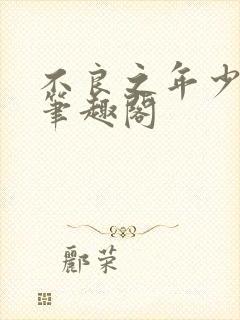 不良之年少
筆趣閣
酈荣